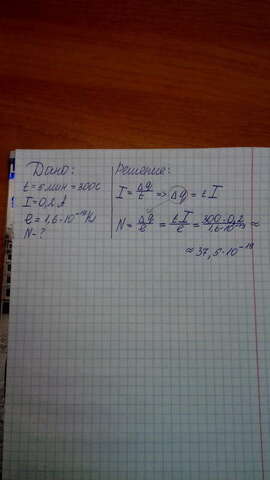 Дано:
t = 5 мин = 300с
I = 0,2 А
e = 1,6·10⁻¹⁹Кл
N - ?
Решение:
I = Δq/t => Δq = t I
N = Δq/e = tI/e = 300·0,2/1,6·10⁻¹⁹ ≈
≈ 37,5·10⁻¹⁹